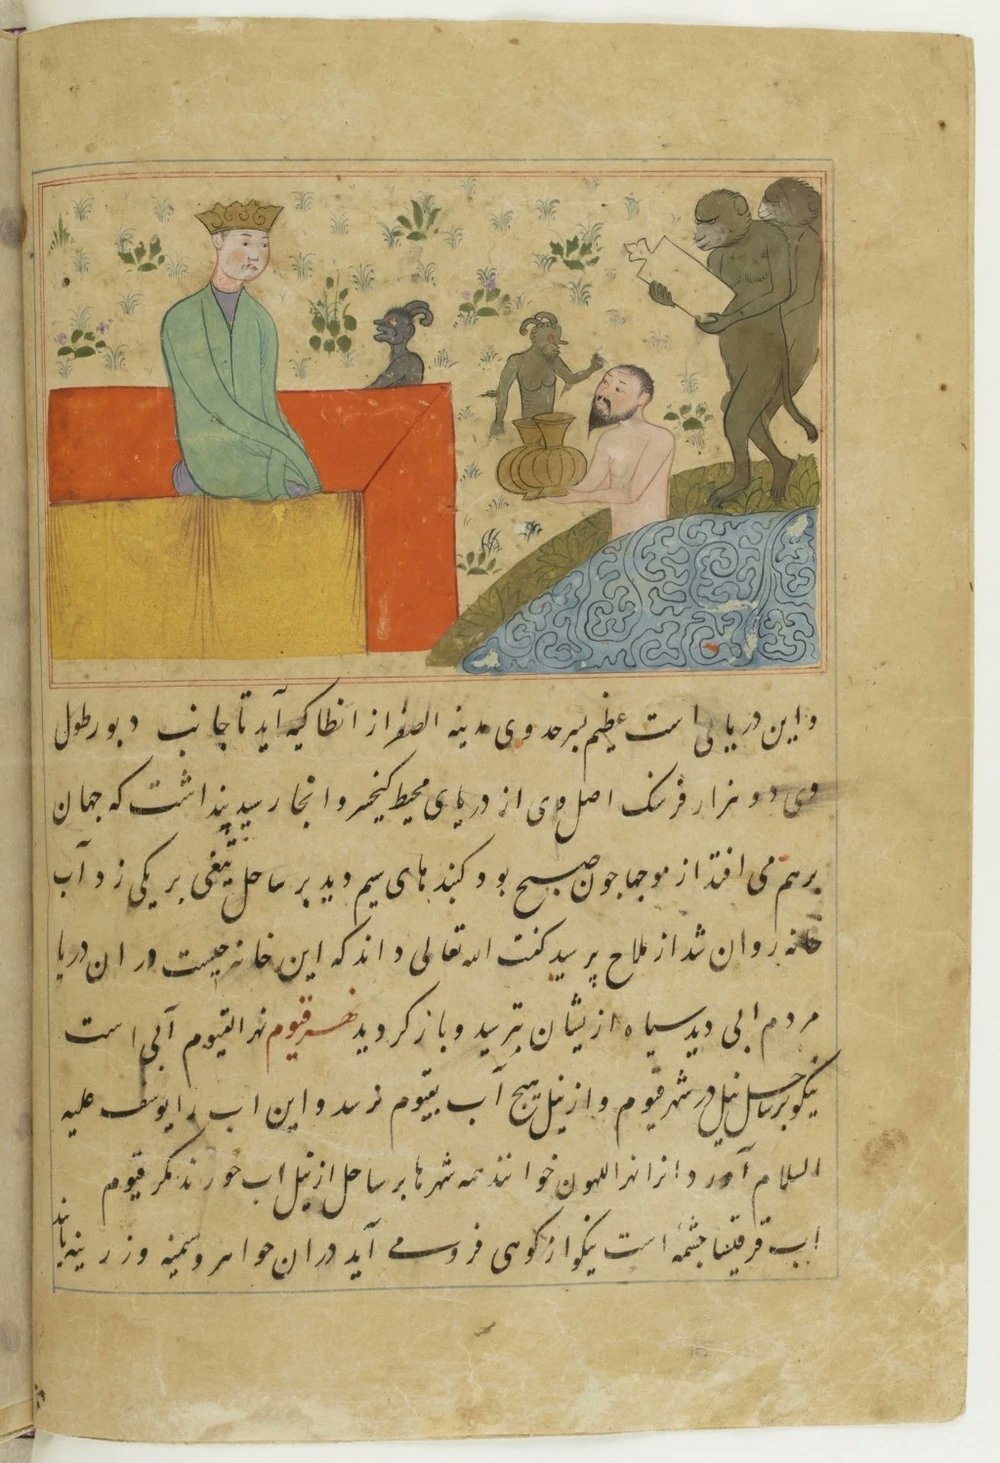 و این دریایی است عظیم بسرحد وی مدینه الصفر از انطاکیه آید تا جانب دبور طول
وی دو هزار فرسنک اصل وی از دریای محیط کیخسرو انجا رسید پنداشت که جهان
برهم می افتد از موجها جون صبح بود کنبدهای سیم دید بر ساحل تیغی بر یکی زد آب
خانه روان شد از ملاح پرسید کفت الله تعالی داند که این خانه جیست در ان دریا
مردم ابی دید سیاه ازیشان بترسید و باز کردید نهر قیوم نهر القیوم آبی است
نیکو بر ساحل نیل در شهر قیوم و از نیل هیج آب بقیوم نرسد و این اب را یوسف علیه
السلام آورد و انرا نهر اللهون خوانند همه شهرها بر ساحل از نیل اب خورند مکر قیوم
اب جشمه است نیکو از کوهی فرو می آید در ان جواهر و سیمینه و زرینه یابند